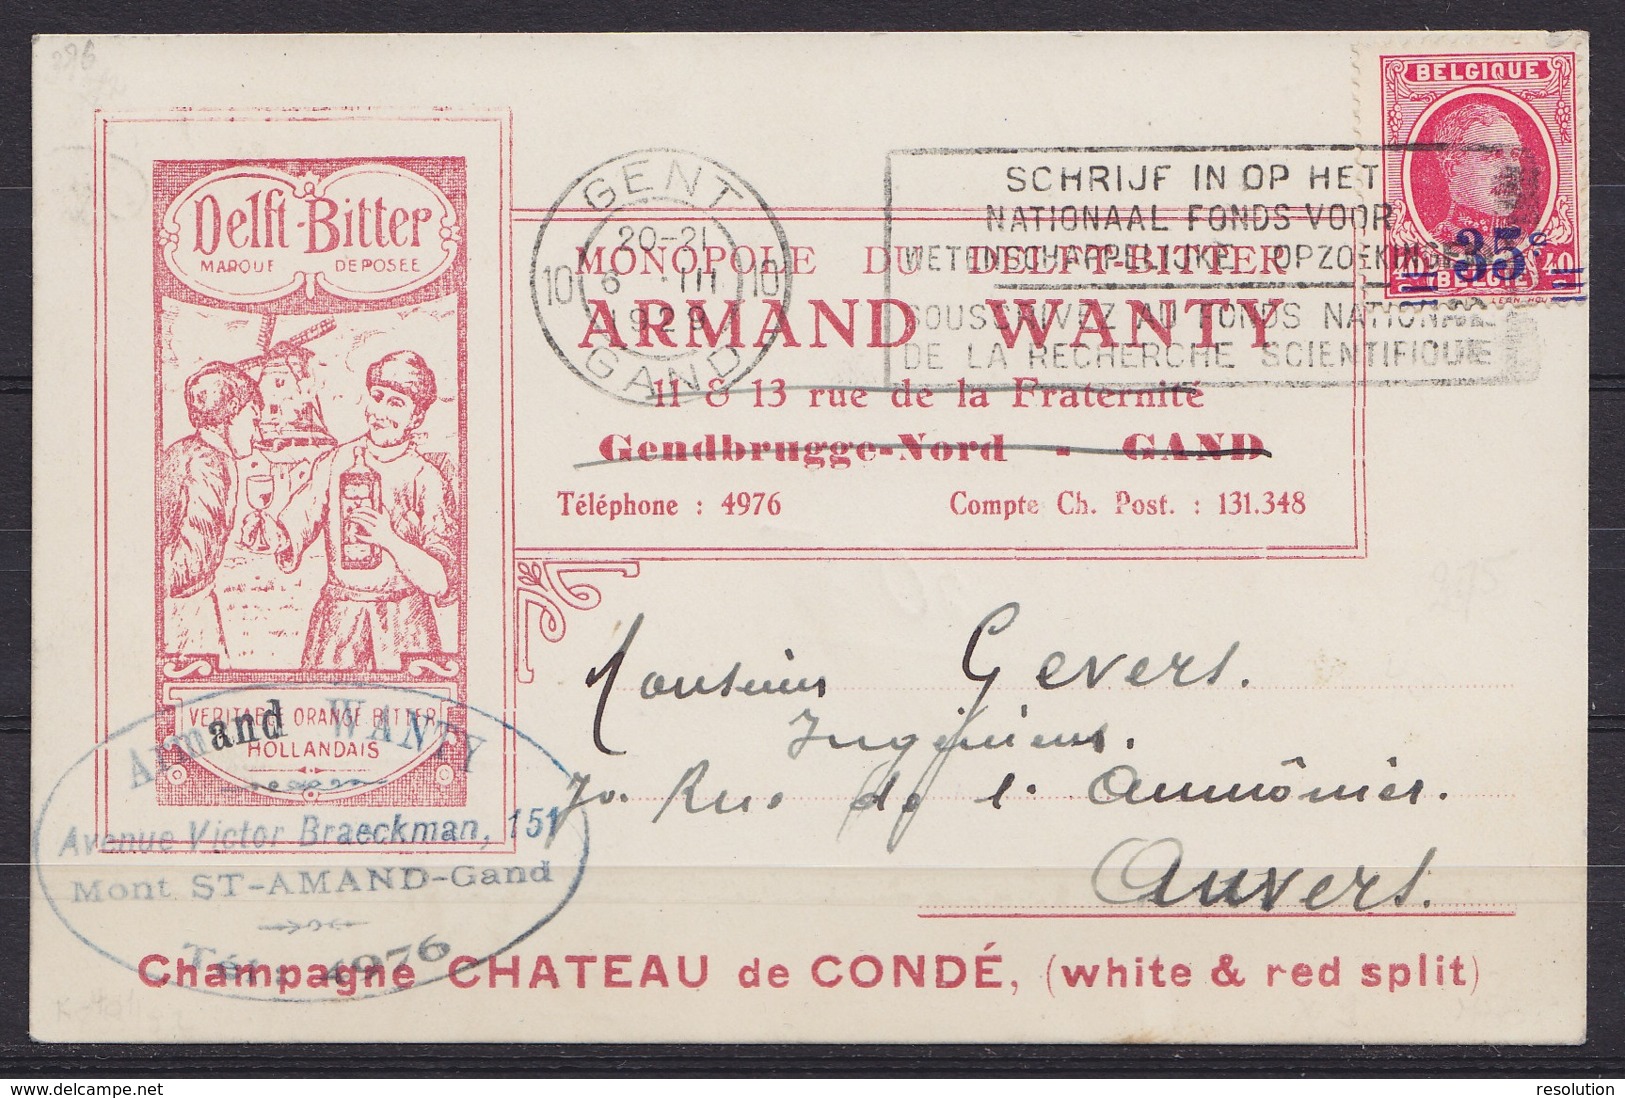 Delft-Bitter
MARQUE DEPOSEE
VERITABLE ORANGE BITTER
HOLLANDAIS
GENT
20-21
10 6 III 10
1929
GAND
SCHRIJF IN OP HET
NATIONAAL FONDS VOOR
WETENSCHAPPELIJKE OPZOEKINGEN
SOUSCRIVEZ AU FONDS NATIONAL
DE LA RECHERCHE SCIENTIFIQUE
BELGIQUE
35c
40 40
BELGIË
MONOPOLE DU DELFT-BITTER
ARMAND WANTY
11 & 13 rue de la Fraternité
Gendbrugge-Nord - GAND
Téléphone : 4976 Compte Ch. Post. : 131.348
Monsieur Gevers.
Ingénieur.
70. Rue de l'Aumônier.
Anvers.
Armand WANTY
Avenue Victor Braeckman, 151
Mont ST-AMAND-Gand
Tél. 4976
Champagne CHATEAU de CONDÉ, (white & red split)
275
delcampe.net
resolution